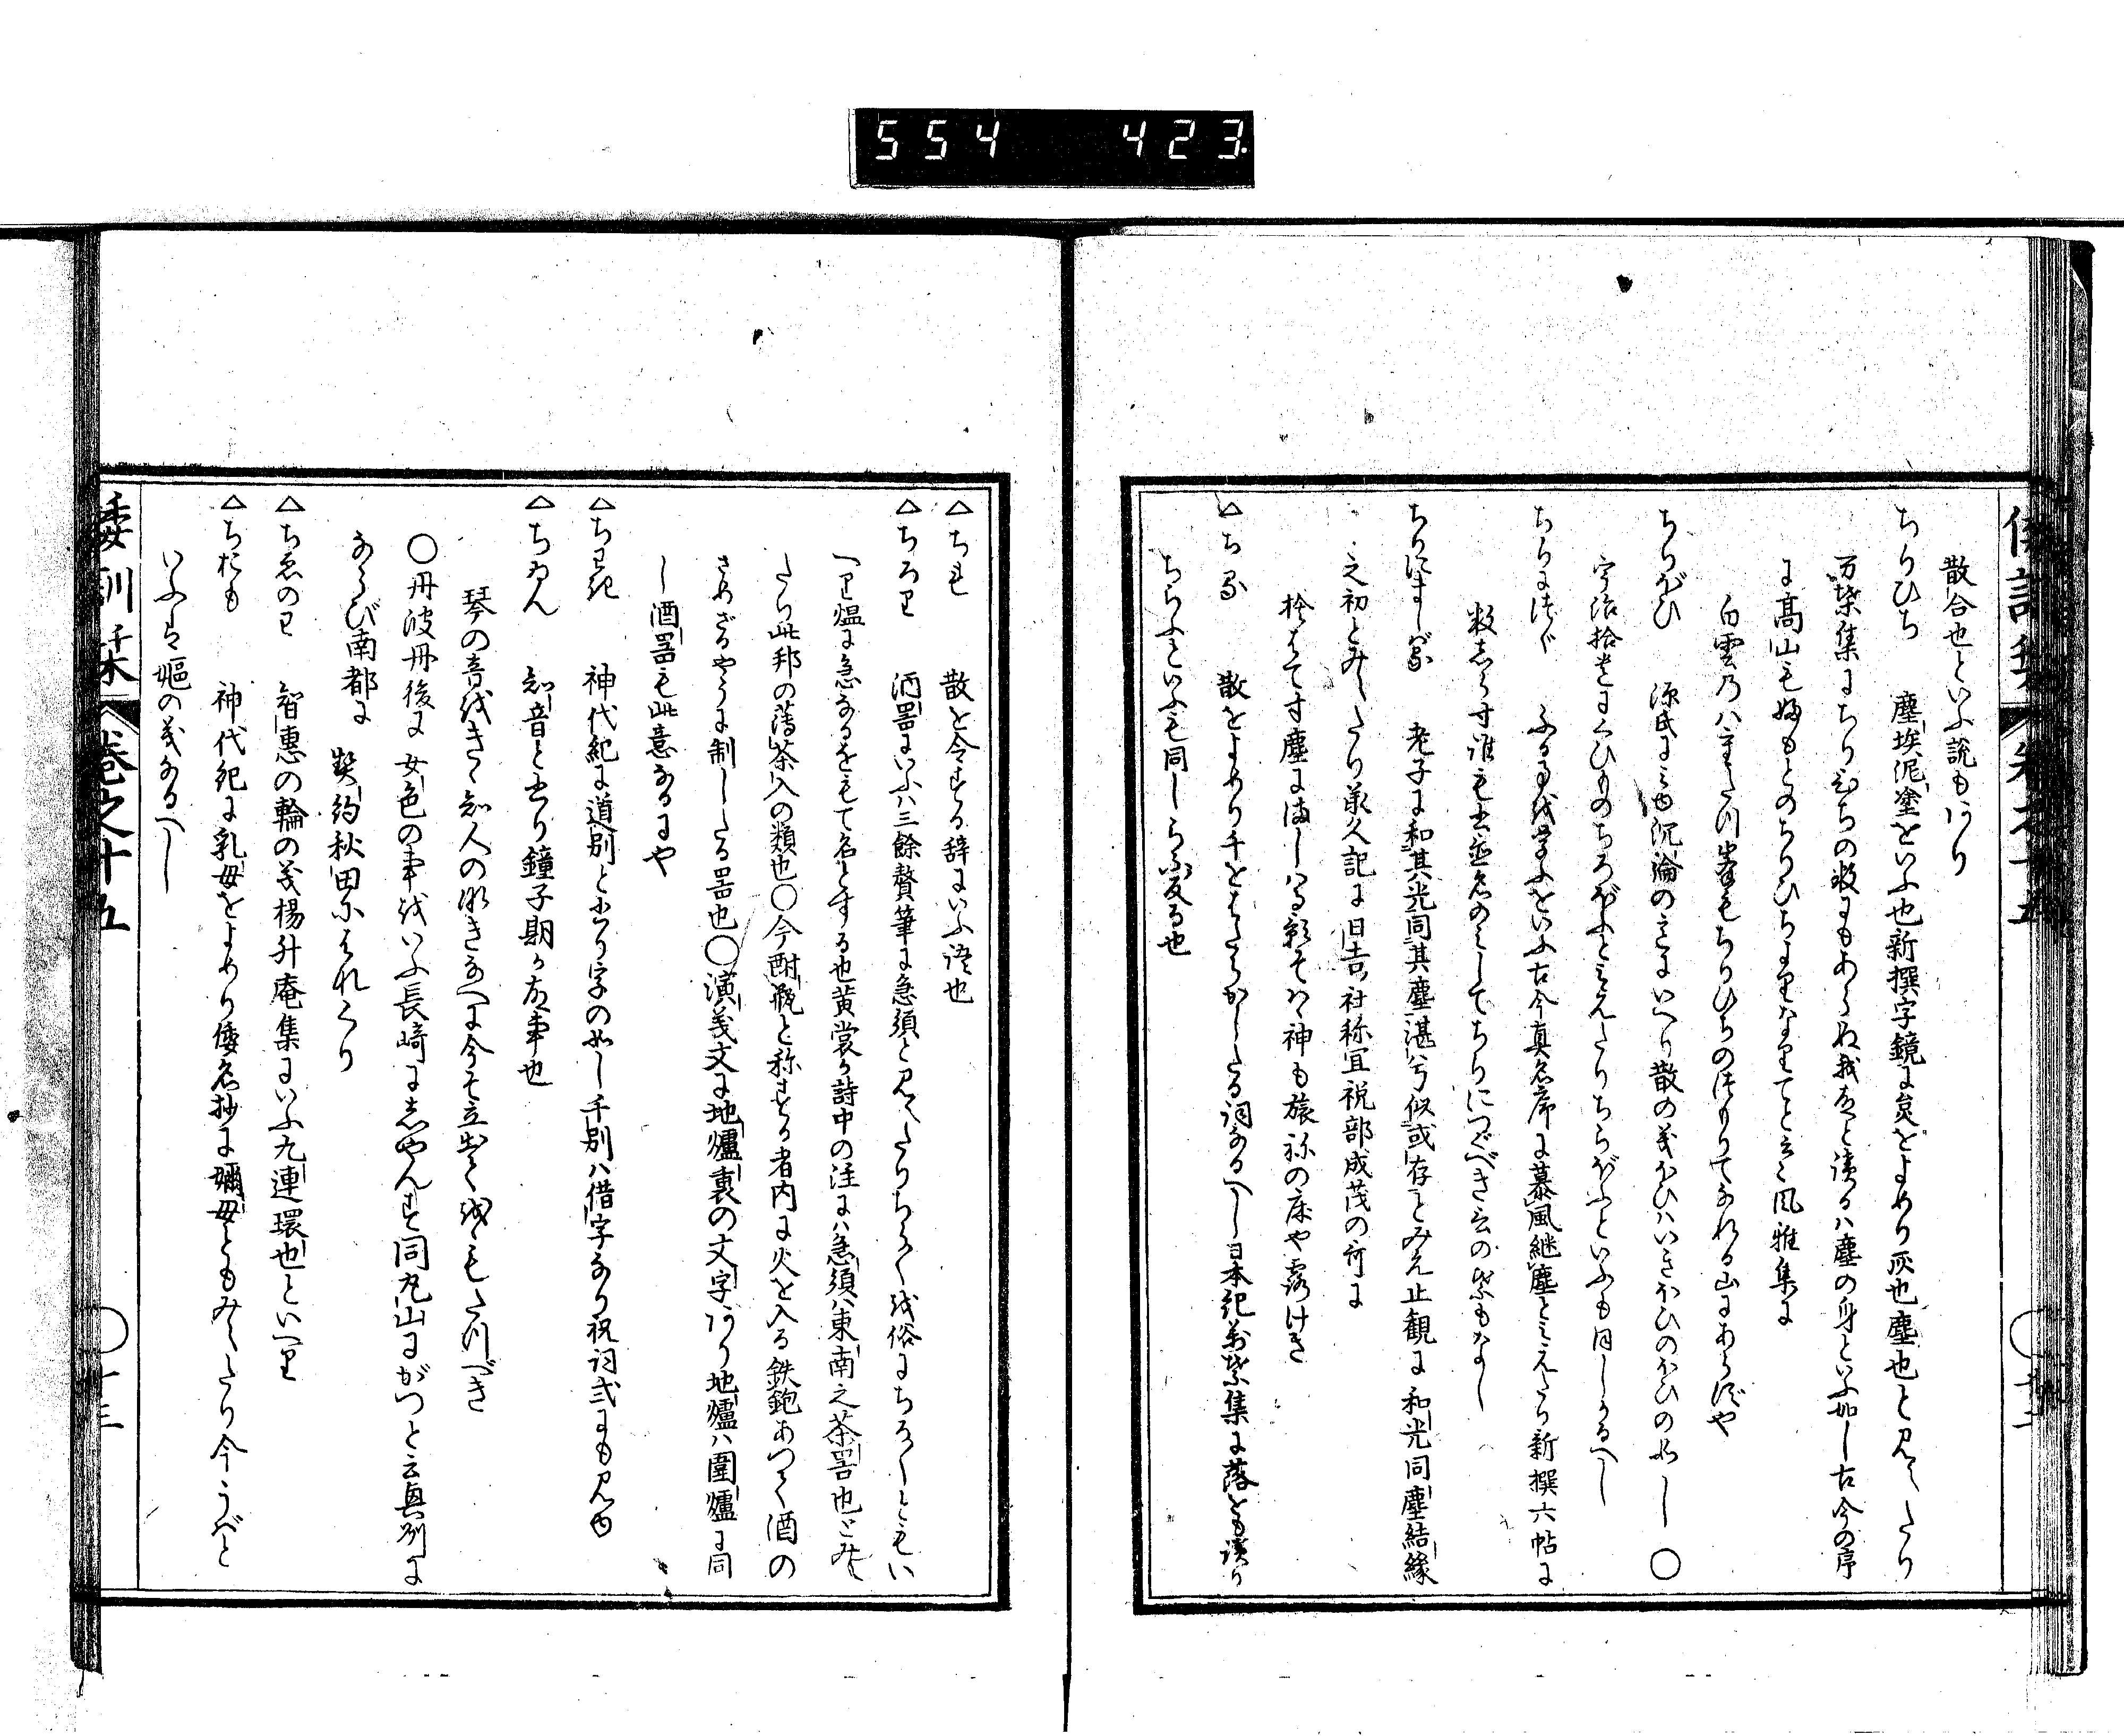 554 423
散合也といふ説もあり
ちりひち 塵埃泥塗をいふ也新撰字鏡に炱をよめり灰也塵也と見えたり
万葉集にちりひちの数にもあらぬ我故と読るハ塵の身といふ如し古今の序
に高山も麓のちりひちよりなりてと云々風雅集に
白雲乃八重たつ峯もちりひちのつもりてなれる山にあらずや
ちりぼひ 源氏に見ゆ沉淪の意にいへり散の義ぼひハいきほひのほひの如し〇
宇治拾遺にくひものちろぼふと見えたりちらぼふといふも同しかるへし
ちりにつぐ ふる事を学ふをいふ古今真名序に慕風継塵と見えたり新撰六帖に
数しらす誰も書並名のみしてちりにつぐべき言の葉もなし
ちりにまじる 老子に和其光同其塵湛兮似或存とみえ止観に和光同塵結縁
之初とみえたり承久記に日吉社祢宜祝部成茂の哥に
すて果す塵にましハる影そハゝ神も旅ねの床や露けき
△ちる 散をよめり千をはたらかしたる詞なるへし日本紀万葉集に落とも読り
ちらふといふも同しらふ反る也
倭訓栞 巻之十五 〇十二
△ちれ 散を令する辞にいふ語也
△ちろり 酒器にいふハ三餘贅筆に急須と見えたりちろく俗にちろしともい
へり煴に急なるをもて名とする也黄裳か詩中の注にハ急須ハ東南之茶器也とみえ
たり此邦の薄茶入の類也〇今酎瓶と称する者内に火を入る鉄鉋あつて酒の
さめざるやうに制したる器也〇演義文に地爐裏の文字あり地爐ハ圍爐に同
し酒器も此意なるにや
△ちわき 神代紀に道別と書り字の如し千別ハ借字なり祝詞式にも見ゆ
△ちゐん 知音と書り鐘子期か故事也
琴の音をきゝ知人のなきなへに今そ立出てをゝもたつべき
〇丹波丹後に女色の事をいふ長崎にしやんす同丸山にがつと云奥州に
ならび南都に 契約秋田にはれくり
△ちゑのわ 智惠の輪の義楊升庵集にいふ九連環也といへり
△ちおも 神代紀に乳母をよめり倭名抄に嬭母ともみえたり今うばと
いふは嫗の義なるへし
倭訓栞 巻之十五 〇十三